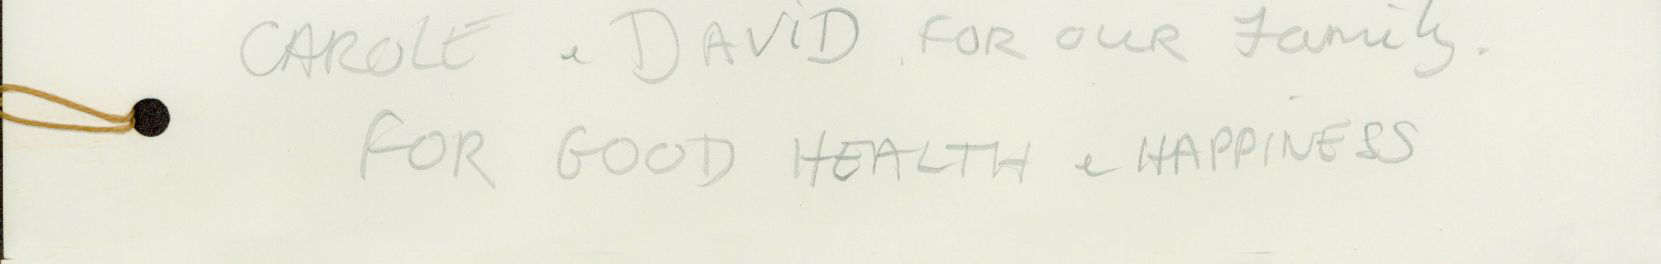 CAROLE & DAVID FOR OUR Family.
FOR GOOD HEALTH & HAPPINESS